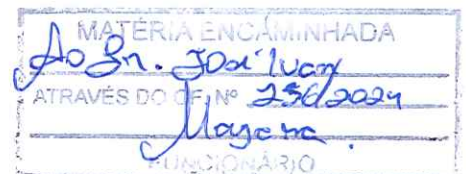 MATÉRIA ENCAMINHADA
Ao Sr. José Ivan
ATRAVÉS DO OF. Nº 236/2024
Mayara
FUNCIONÁRIO